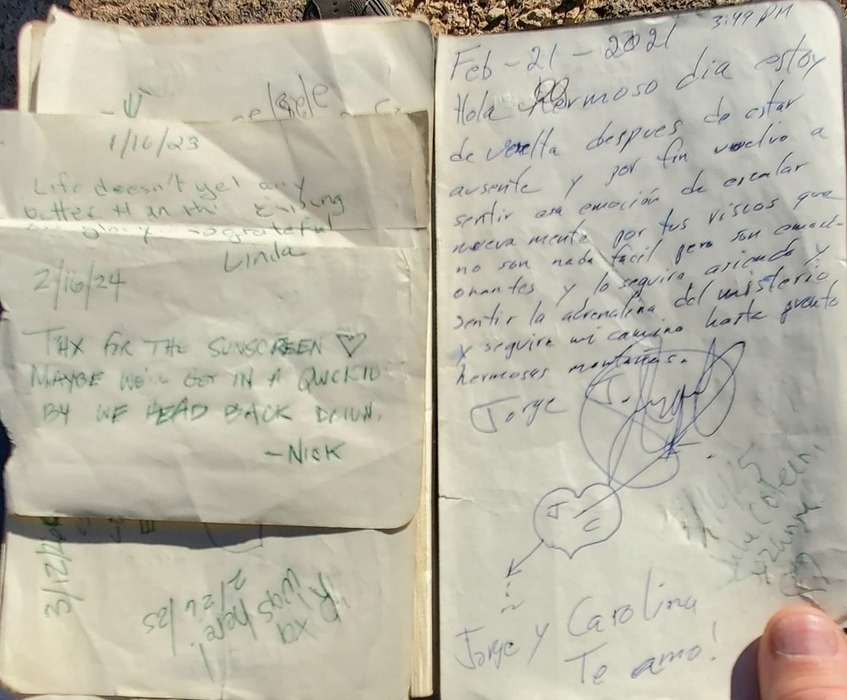 1/16/23
Life doesn't get any
better than this
grateful
Linda
2/16/24
THX FOR THE SUNSCREEN ♡
MAYBE WE'LL GET IN A
BY WE HEAD BACK DOWN.
-NICK
3/12/20
was here!
2/26/25
Feb-21-2021 3:49 PM
Hola hermoso dia estoy
de vuelta despues de estar
ausente y por fin vuelvo a
sentir esa emoción de escalar
nueva mente por tus riscos que
no son nada facil pero son emoci-
onantes y lo seguire
sentir la adrenalina del misterio
y seguire mi camino hasta pronto
hermosas montañas.
Jorge J.
J
C
Jorge y Carolina
Te amo!